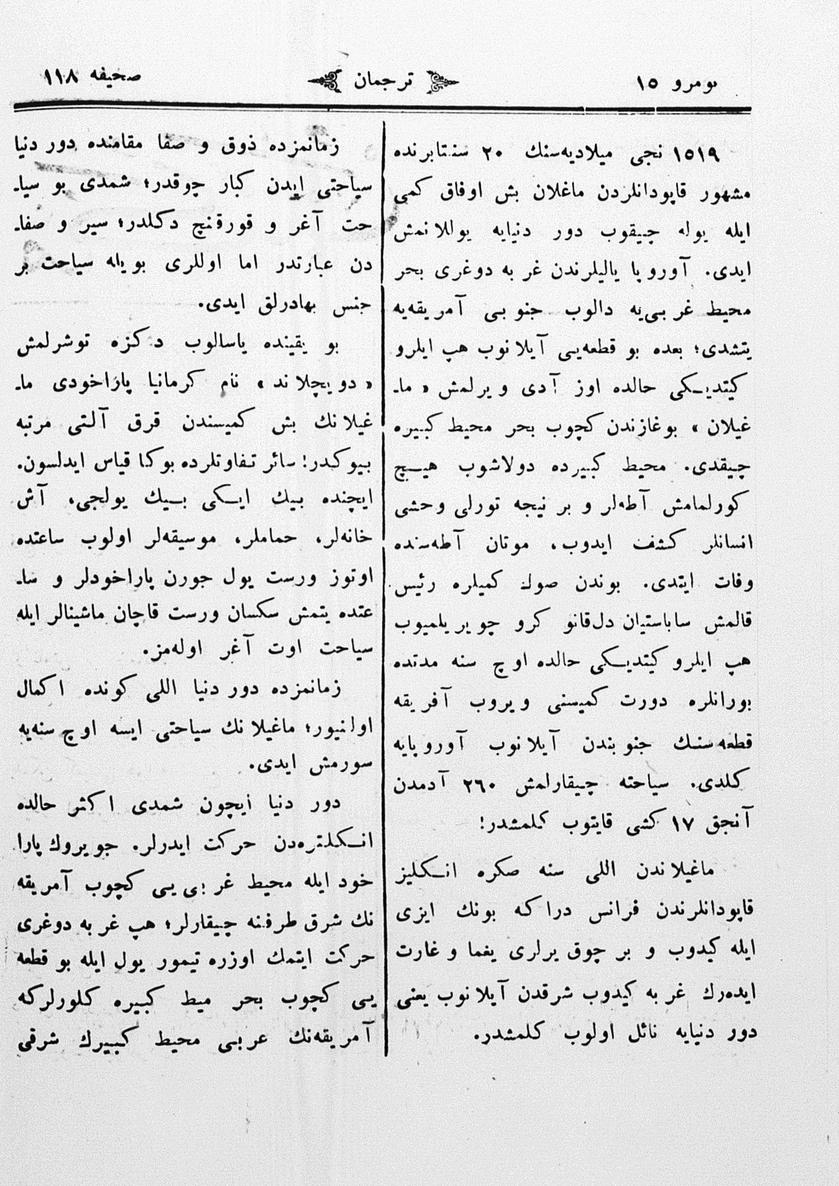 نومرو ١٥
ترجمان
صحیفه ١١٨
١٥١٩ نجی میلادیه‌سنك ٢٠ سنتابرنده
مشهور قاپودانلردن ماغلان بش اوفاق كمی
ایله یوله چیقوب دور دنیایه یوللانمش
ایدی. آوروپا یالیلرندن غربه دوغری بحر
محیط غربی‌یه دالوب جنوبی آمریقه‌یه
یتشدی؛ بعده بو قطعه‌یی آیلانوب هپ ایلرو
كیتدیكی حالده اوز آدی ویرلمش «ما-
غیلان» بوغازندن كچوب بحر محیط كبیره
چیقدی. محیط كبیرده دولاشوب هیچ
كورلمامش آطه‌لر و بر نیجه تورلی وحشی
انسانلر كشف ایدوب، موتان آطه‌سنده
وفات ایتدی. بوندن صوك كمیلره رئیس
قالمش ساباستیان دل‌قانو كرو چویریلمیوب
هپ ایلرو كیتدیكی حالده اوچ سنه مدتده
بورانلره دورت كمیسنی ویروب آفریقه
قطعه‌سنك جنوبندن آیلانوب آوروپایه
كلدی. سیاحته چیقارلمش ٢٦٠ آدمدن
آنجق ١٧ كشی قایتوب كلمشدر!
ماغیلاندن اللی سنه صكره انكلیز
قاپودانلرندن فرانس دراكه بونك ایزی
ایله كیدوب و بر چوق یرلری یغما و غارت
ایده‌رك غربه كیدوب شرقدن آیلانوب یعنی
دور دنیایه نائل اولوب كلمشدر.
زمانمزده ذوق و صفا مقامنده دور دنیا
سیاحتی ایدن كبار چوقدر؛ شمدی بو سیا-
حت آغر و قورقنچ دكلدر؛ سیر و صفا-
دن عبارتدر اما اوللری بویله سیاحت بر
جنس بهادرلق ایدی.
بو یقینده یاسالوب دكزه توشرلمش
«دویچلاند» نام كرمانیا پاراخودی ما-
غیلانك بش كمیسندن قرق آلتی مرتبه
بیوكدر! سائر تفاوتلرده بوكا قیاس ایدلسون.
ایچنده بیك ایكی بیك یولجی، آش
خانه‌لر، حماملر، موسیقه‌لر اولوب ساعتده
اوتوز ورست یول جورن پاراخودلر و سا-
عتده یتمش سكسان ورست قاچان ماشینالر ایله
سیاحت اوت آغر اوله‌مز.
زمانمزده دور دنیا اللی كونده اكمال
اولنیور؛ ماغیلانك سیاحتی ایسه اوچ سنه‌یه
سورمش ایدی.
دور دنیا ایچون شمدی اكثر حالده
انكلتره‌دن حركت ایدرلر. جویروك پارا
خود ایله محیط غربی‌یی كچوب آمریقه
نك شرق طرفنه چیقارلر؛ هپ غربه دوغری
حركت ایتمك اوزره تیمور یول ایله بو قطعه
یی كچوب بحر میط كبیره كلورلركه
آمریقه‌نك عربی محیط كبیرك شرقی